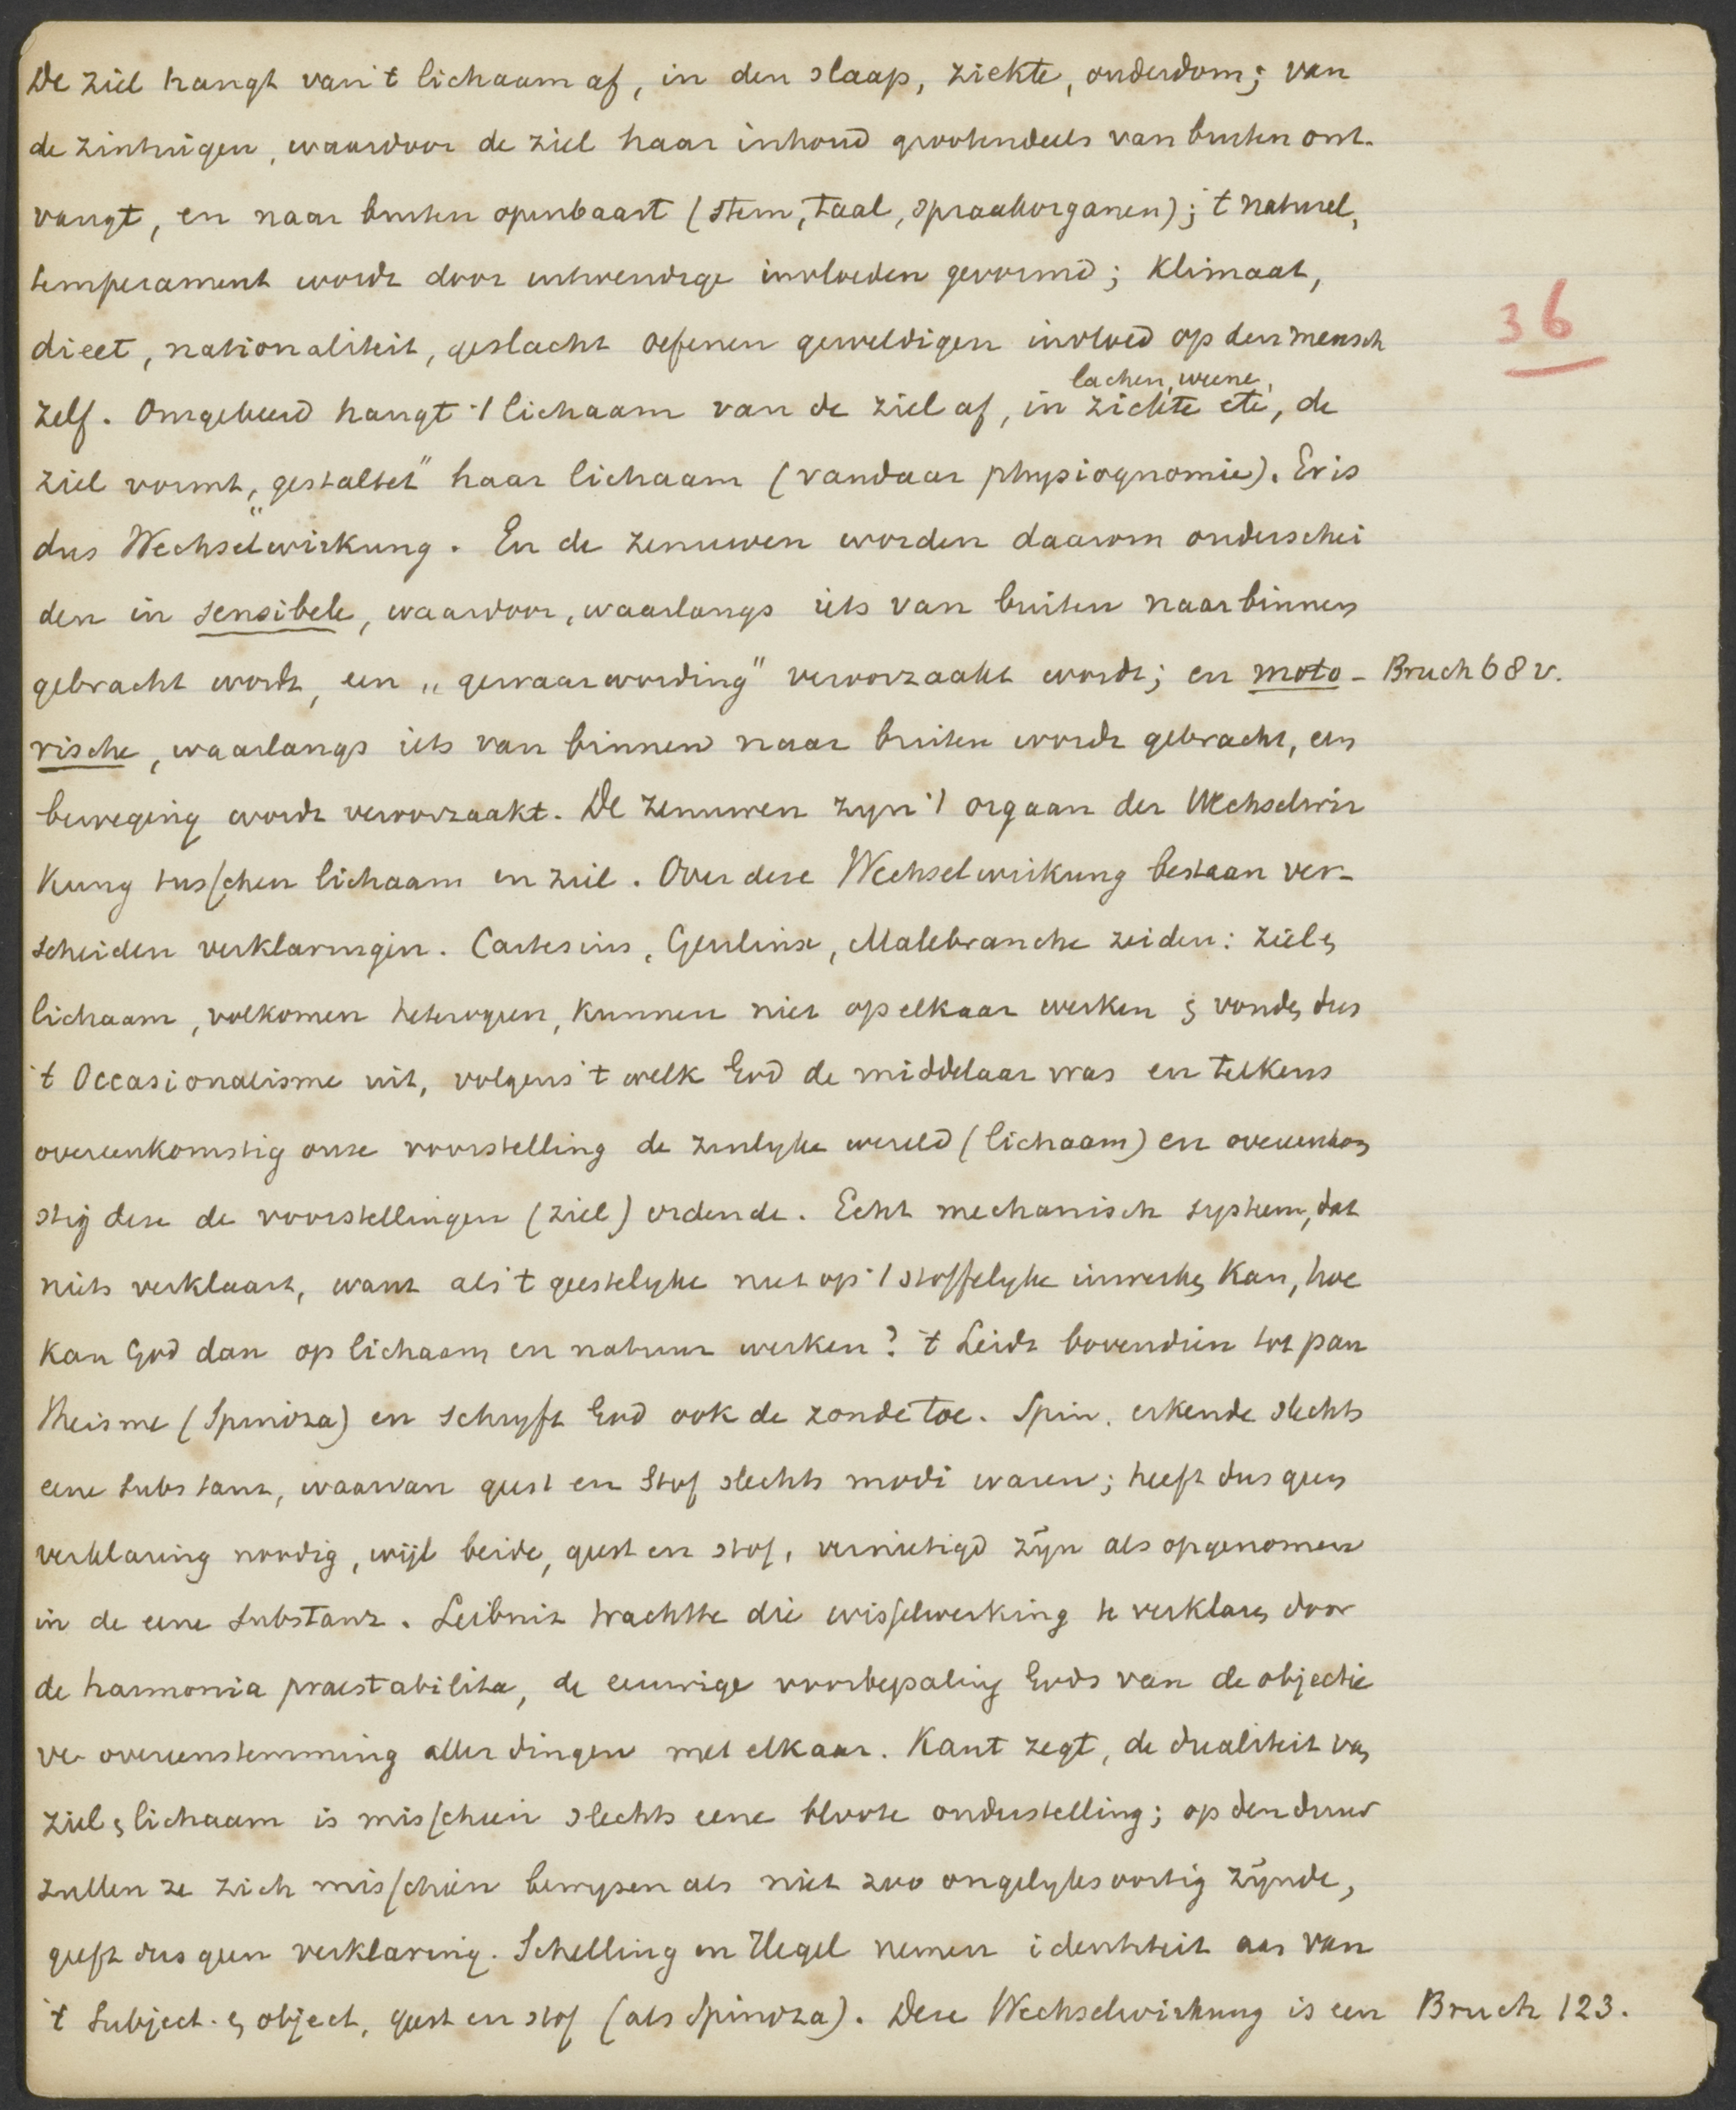 De ziel hangt van 't lichaam af, in den slaap, ziekte, ouderdom; van
de zintuigen, waardoor de ziel haar inhoud grootendeels van buiten ont-
vangt, en naar buiten openbaart (stem, taal, spraakorganen); 't naturel,
temperament wordt door uitwendige invloeden gevormd; klimaat,
dieet, nationaliteit, geslacht oefenen geweldigen invloed op den mensch
36
lachen, weene,
zelf. Omgekeerd hangt 't lichaam van de ziel af, in ziekte etc, de
ziel vormt, „gestaltet" haar lichaam (vandaar physiognomie). Er is
dus Wechselwirkung. En de zenuwen worden daarom onderschei
den in sensibele, waardoor, waarlangs iets van buiten naar binnen
gebracht wordt, een „gewaarwording" veroorzaakt wordt; en moto- Bruch 68 v.
rische, waarlangs iets van binnen naar buiten wordt gebracht, een
beweging wordt veroorzaakt. De zenuwen zyn 't orgaan der Wechselwir
kung tusschen lichaam en ziel. Over deze Wechselwirkung bestaan ver-
scheiden verklaringen. Cartesius, Geulinx, Malebranche zeiden: ziel &
lichaam, volkomen heterogeen, kunnen niet op elkaar werken & vonden dus
't Occasionalisme uit, volgens 't welk God de middelaar was en telkens
overeenkomstig onze voorstelling de zinlyke wereld (lichaam) en overeenkom
stig deze de voorstellingen (ziel) ordende. Echt mechanisch systeem, dat
niets verklaart, want als 't geestelyke niet op 't stoffelyke inwerken kan, hoe
kan God dan op lichaam en natuur werken? 't Leidt bovendien tot pan
theisme (Spinoza) en schryft God ook de zonde toe. Spin. erkende slechts
eene substanz, waarvan geest en stof slechts modi waren; heeft dus geen
verklaring noodig, wijl beide, geest en stof, vernietigd zÿn als opgenomen
in de eene substanz. Leibniz trachtte die wisselwerking te verklaren door
de harmonia praestabilita, de eeuwige voorbepaling Gods van de objectie
ve overeenstemming aller dingen met elkaar. Kant zegt, de dualiteit van
ziel & lichaam is misschien slechts eene bloote onderstelling; op den duur
zullen ze zich misschien bewyzen als niet zoo ongelyksoortig zÿnde,
geeft dus geen verklaring. Schelling en Hegel nemen identiteit aan van
't Subject. & object, geest en stof (als Spinoza). Deze Wechselwirkung is een Bruch 123.